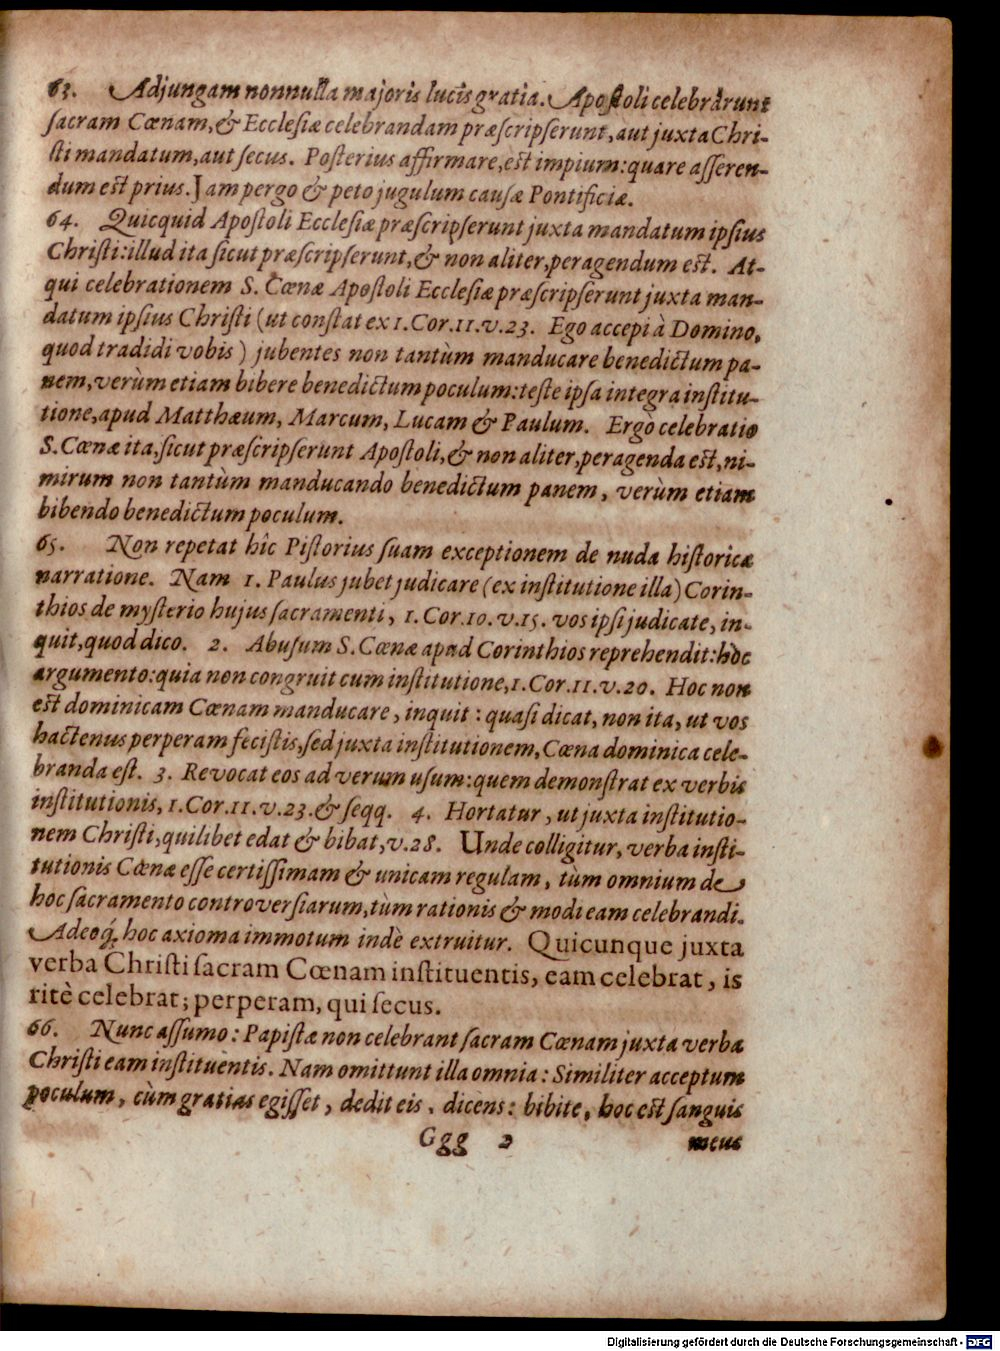 63. Adjungam nonnulla majoris lucis gratia. Apostoli celebrârunt
sacram Cœnam, & Ecclesiæ celebrandam præscripserunt, aut juxta Chri-
sti mandatum, aut secus. Posterius affirmare, est impium: quare asseren-
dum est prius. Jam pergo & peto jugulum causæ Pontificiæ.
64. Quicquid Apostoli Ecclesiæ præscripserunt juxta mandatum ipsius
Christi: illud ita sicut præscripserunt, & non aliter, peragendum est. At-
qui celebrationem S. Cœnæ Apostoli Ecclesiæ præscripserunt juxta man-
datum ipsius Christi (ut constat ex 1. Cor. 11. v. 23. Ego accepi à Domino,
quod tradidi vobis) jubentes non tantùm manducare benedictum pa-
nem, verùm etiam bibere benedictum poculum: teste ipsa integra institu-
tione, apud Matthæum, Marcum, Lucam & Paulum. Ergo celebratio
S. Cœnæ ita, sicut præscripserunt Apostoli, & non aliter, peragenda est, ni-
mirum non tantùm manducando benedictum panem, verùm etiam
bibendo benedictum poculum.
65. Non repetat hîc Pistorius suam exceptionem de nuda historicæ
narratione. Nam 1. Paulus jubet judicare (ex institutione illa) Corin-
thios de mysterio hujus sacramenti, 1. Cor. 10. v. 15. vos ipsi judicate, in-
quit, quod dico. 2. Abusum S. Cœnæ apud Corinthios reprehendit: hoc
argumento: quia non congruit cum institutione, 1. Cor. 11. v. 20. Hoc non
est dominicam Cœnam manducare, inquit: quasi dicat, non ita, ut vos
hactenus perperam fecistis, sed juxta institutionem, Cœna dominica cele-
branda est. 3. Revocat eos ad verum usum: quem demonstrat ex verbis
institutionis, 1. Cor. 11. v. 23. & seqq. 4. Hortatur, ut juxta institutio-
nem Christi, quilibet edat & bibat, v. 28. Unde colligitur, verba insti-
tutionis Cœnæ esse certissimam & unicam regulam, tùm omnium de
hoc sacramento controversiarum, tùm rationis & modi eam celebrandi.
Adeoq́; hoc axioma immotum indè extruitur. Quicunque juxta
verba Christi sacram Cœnam instituentis, eam celebrat, is
ritè celebrat; perperam, qui secus.
66. Nunc assumo: Papistæ non celebrant sacram Cœnam juxta verba
Christi eam instituentis. Nam omittunt illa omnia: Similiter acceptum
poculum, cùm gratias egisset, dedit eis, dicens: bibite, hoc est sanguis
Ggg 2 meus
Digitalisierung gefördert durch die Deutsche Forschungsgemeinschaft - DFG